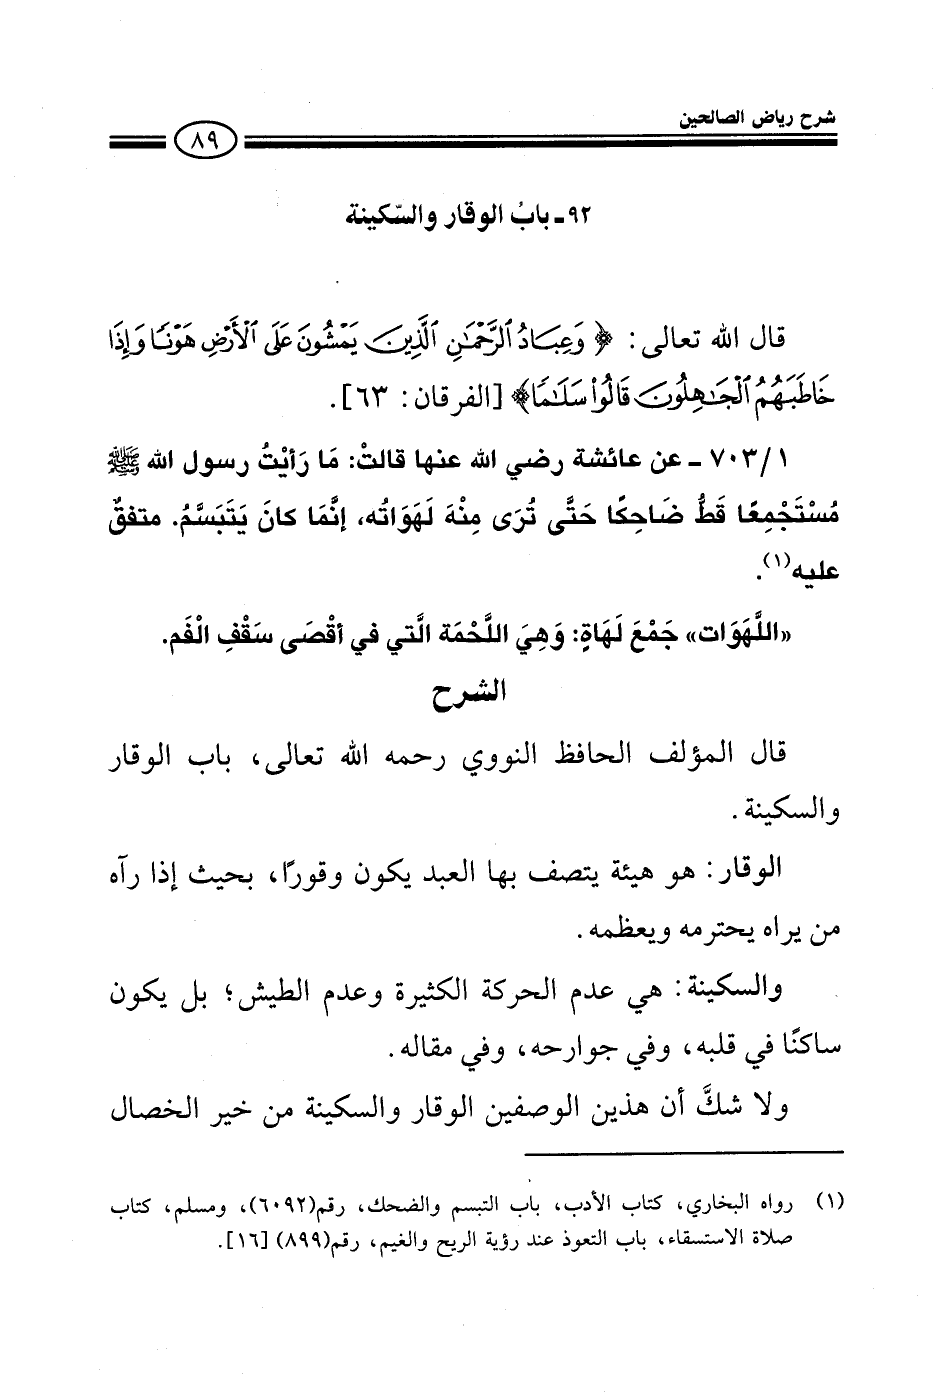 شرح رياض الصالحين
٨٩
٩٢ـ بابُ الوقار والسّكينة
قال الله تعالى: ﴿ وَعِبَادُ ٱلرَّحْمَٰنِ ٱلَّذِينَ يَمْشُونَ عَلَى ٱلْأَرْضِ هَوْنًا وَإِذَا
خَاطَبَهُمُ ٱلْجَٰهِلُونَ قَالُوا۟ سَلَٰمًا﴾ [الفرقان: ٦٣].
٧٠٣/١ ـ عن عائشة رضي الله عنها قالتْ: مَا رَأيْتُ رسول الله ﷺ
مُسْتَجْمِعًا قَطُّ ضَاحِكًا حَتَّى تُرَى مِنْهَ لَهَوَاتُه، إنَّمَا كانَ يَتَبَسَّمُ. متفقٌ
عليه(١).
«اللَّهَوَات» جَمْعَ لَهَاةٍ: وَهِيَ اللَّحْمَة الَّتي في أقْصَى سَقْفِ الْفَم.
الشرح
قال المؤلف الحافظ النووي رحمه الله تعالى، باب الوقار
والسكينة.
الوقار: هو هيئة يتصف بها العبد يكون وقورًا، بحيث إذا رآه
من يراه يحترمه ويعظمه.
والسكينة: هي عدم الحركة الكثيرة وعدم الطيش؛ بل يكون
ساكنًا في قلبه، وفي جوارحه، وفي مقاله.
ولا شكَّ أن هذين الوصفين الوقار والسكينة من خير الخصال
(١) رواه البخاري، كتاب الأدب، باب التبسم والضحك، رقم(٦٠٩٢)، ومسلم، كتاب
صلاة الاستسقاء، باب التعوذ عند رؤية الريح والغيم، رقم(٨٩٩) [١٦].